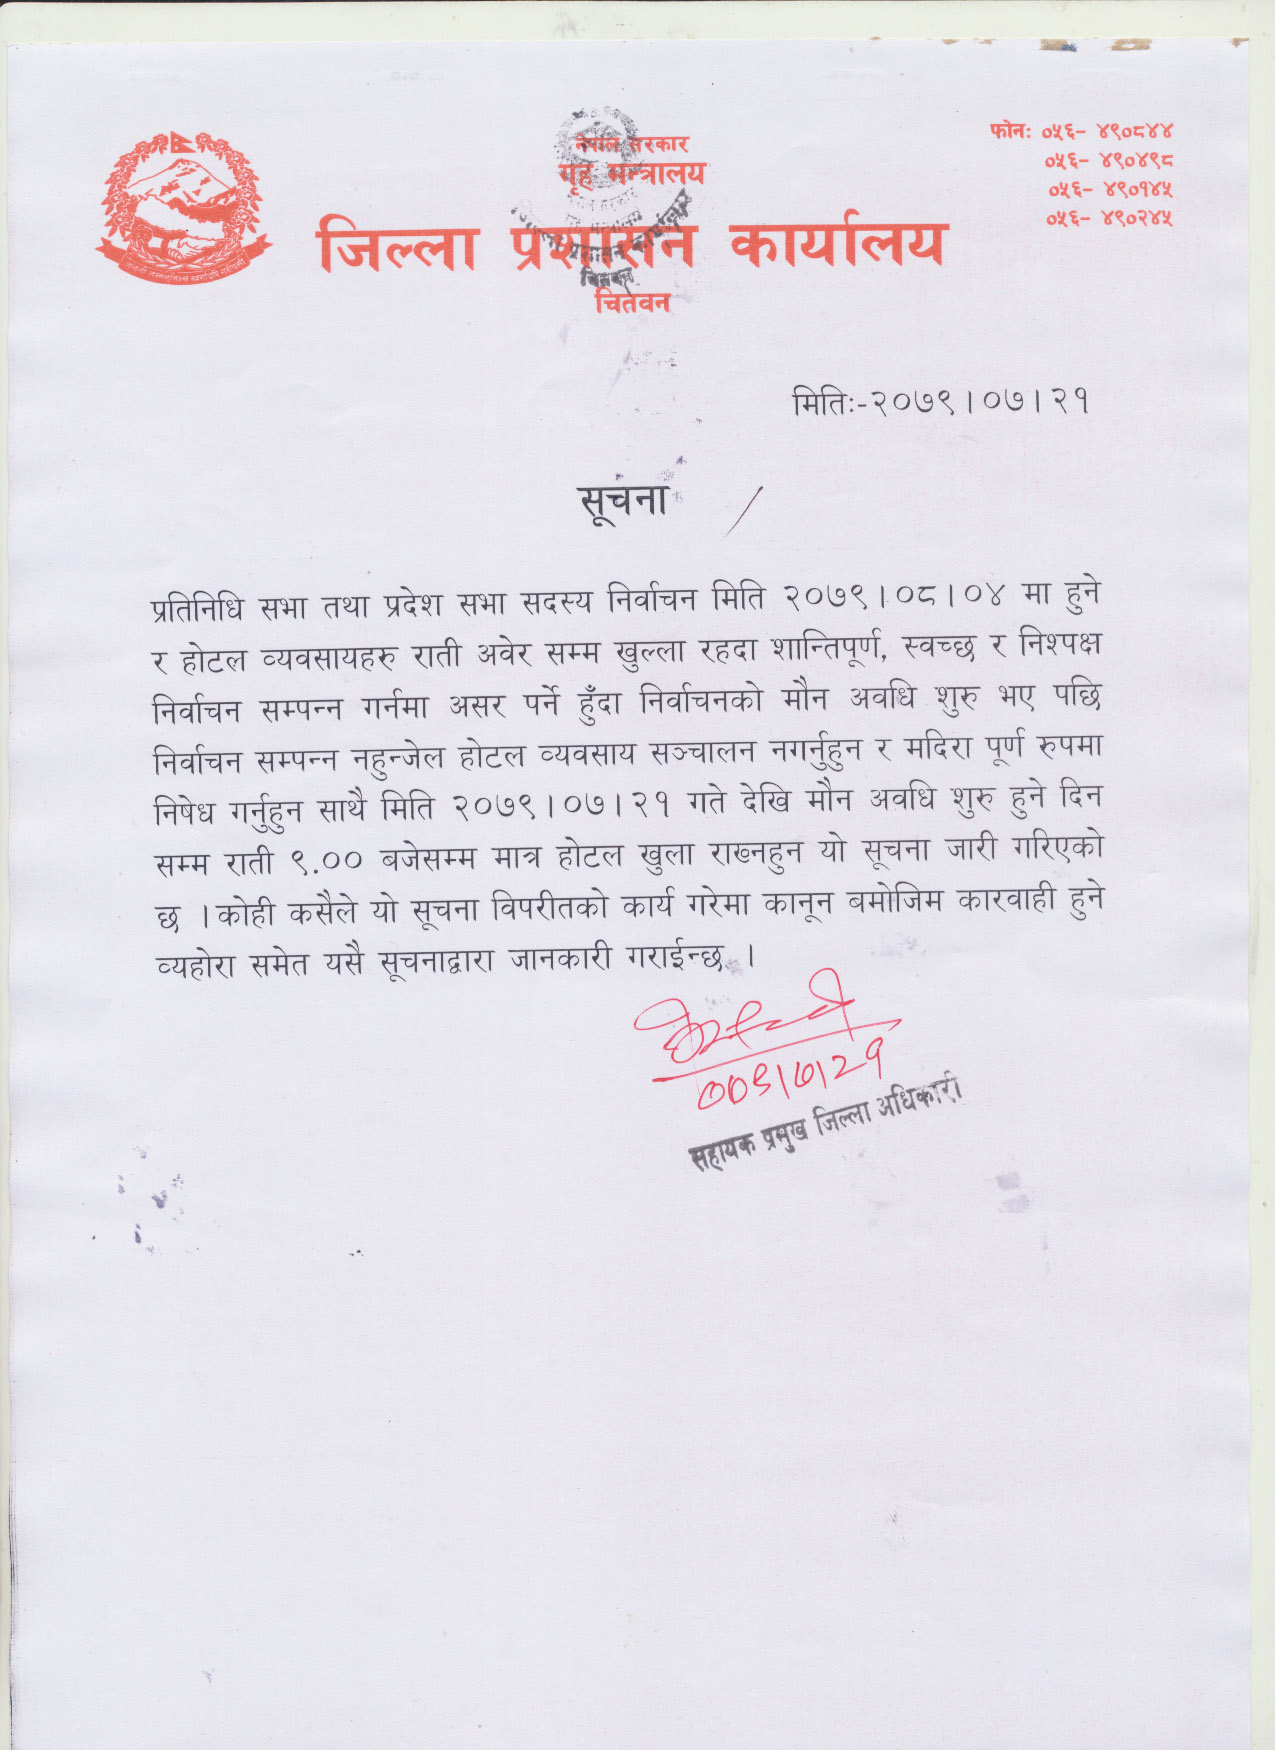 फोनः ०५६- ४९०८४४
०५६- ४९०४९८
०५६- ४९०१४५
०५६- ४९०२४५
नेपाल सरकार
गृह मन्त्रालय
जिल्ला प्रशासन कार्यालय
चितवन
मितिः-२०७९।०७।२१
सूचना
प्रतिनिधि सभा तथा प्रदेश सभा सदस्य निर्वाचन मिति २०७९।०८।०४ मा हुने
र होटल व्यवसायहरु राती अवेर सम्म खुल्ला रहदा शान्तिपूर्ण, स्वच्छ र निश्पक्ष
निर्वाचन सम्पन्न गर्नमा असर पर्ने हुँदा निर्वाचनको मौन अवधि शुरु भए पछि
निर्वाचन सम्पन्न नहुन्जेल होटल व्यवसाय सञ्चालन नगर्नुहुन र मदिरा पूर्ण रुपमा
निषेध गर्नुहुन साथै मिति २०७९।०७।२१ गते देखि मौन अवधि शुरु हुने दिन
सम्म राती ९.०० बजेसम्म मात्र होटल खुला राख्नहुन यो सूचना जारी गरिएको
छ । कोही कसैले यो सूचना विपरीतको कार्य गरेमा कानून बमोजिम कारवाही हुने
व्यहोरा समेत यसै सूचनाद्वारा जानकारी गराईन्छ ।
सहायक प्रमुख जिल्ला अधिकारी